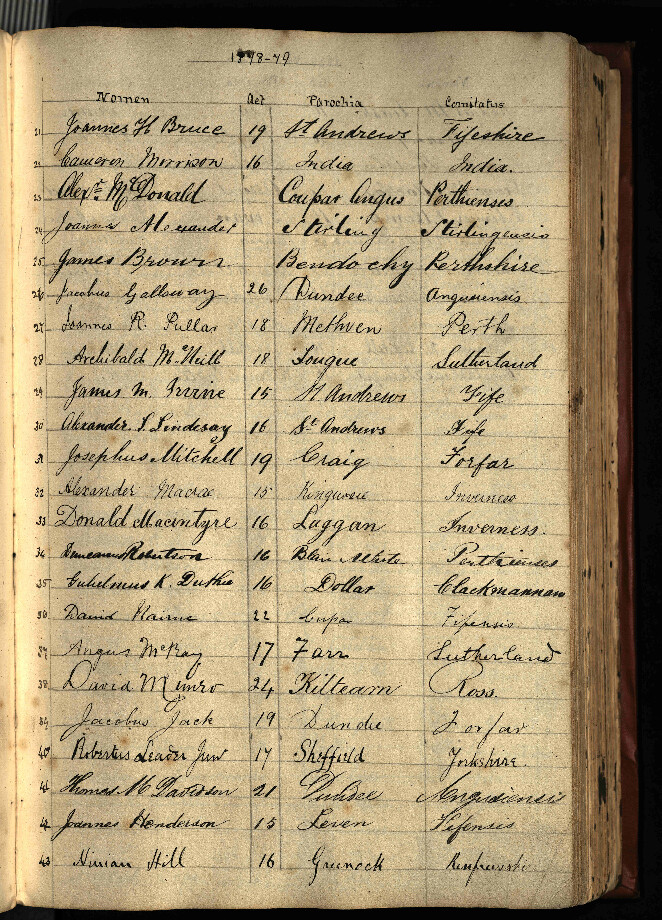 1878-79
Nomen Aet Parochia Comitatus
21 Joannes H Bruce 19 St Andrews Fifeshire
22 Cameron Morrison 16 India India.
23 Alexr. McDonald Coupar Angus Perthienses
24 Joannes Alexander Stirling Stirlingensis
25 James Brown Bendochy Perthshire
26 Jacobus Galloway 26 Dundee Angusiensis
27 Joannes R. Pullar 18 Methven Perth
28 Archibald McNeill 18 Tongue Sutherland
29 James M. Irvine 15 St Andrews Fife
30 Alexander S. Lindesay 16 St Andrews Fife
31 Josephus Mitchell 19 Craig Forfar
32 Alexander Macrae 15 Kingussie Inverness
33 Donald Macintyre 16 Laggan Inverness.
34 Duncanus Robertson 16 Blair Perthienses
35 Gulielmus K. Duthie 16 Dollar Clackmannan
36 David Nairne 22 Cupar Fifensis
37 Angus McKay 17 Farr Sutherland
38 David Munro 24 Kilteam Ross.
39 Jacobus Jack 19 Dundee Forfar
40 Robertus Leader Junr 17 Sheffield Yorkshire.
41 Thomas M Davidson 21 Dundee Angusiensis
42 Joannes Henderson 15 Leven Fifensis
43 Ninian Hill 16 Grunock